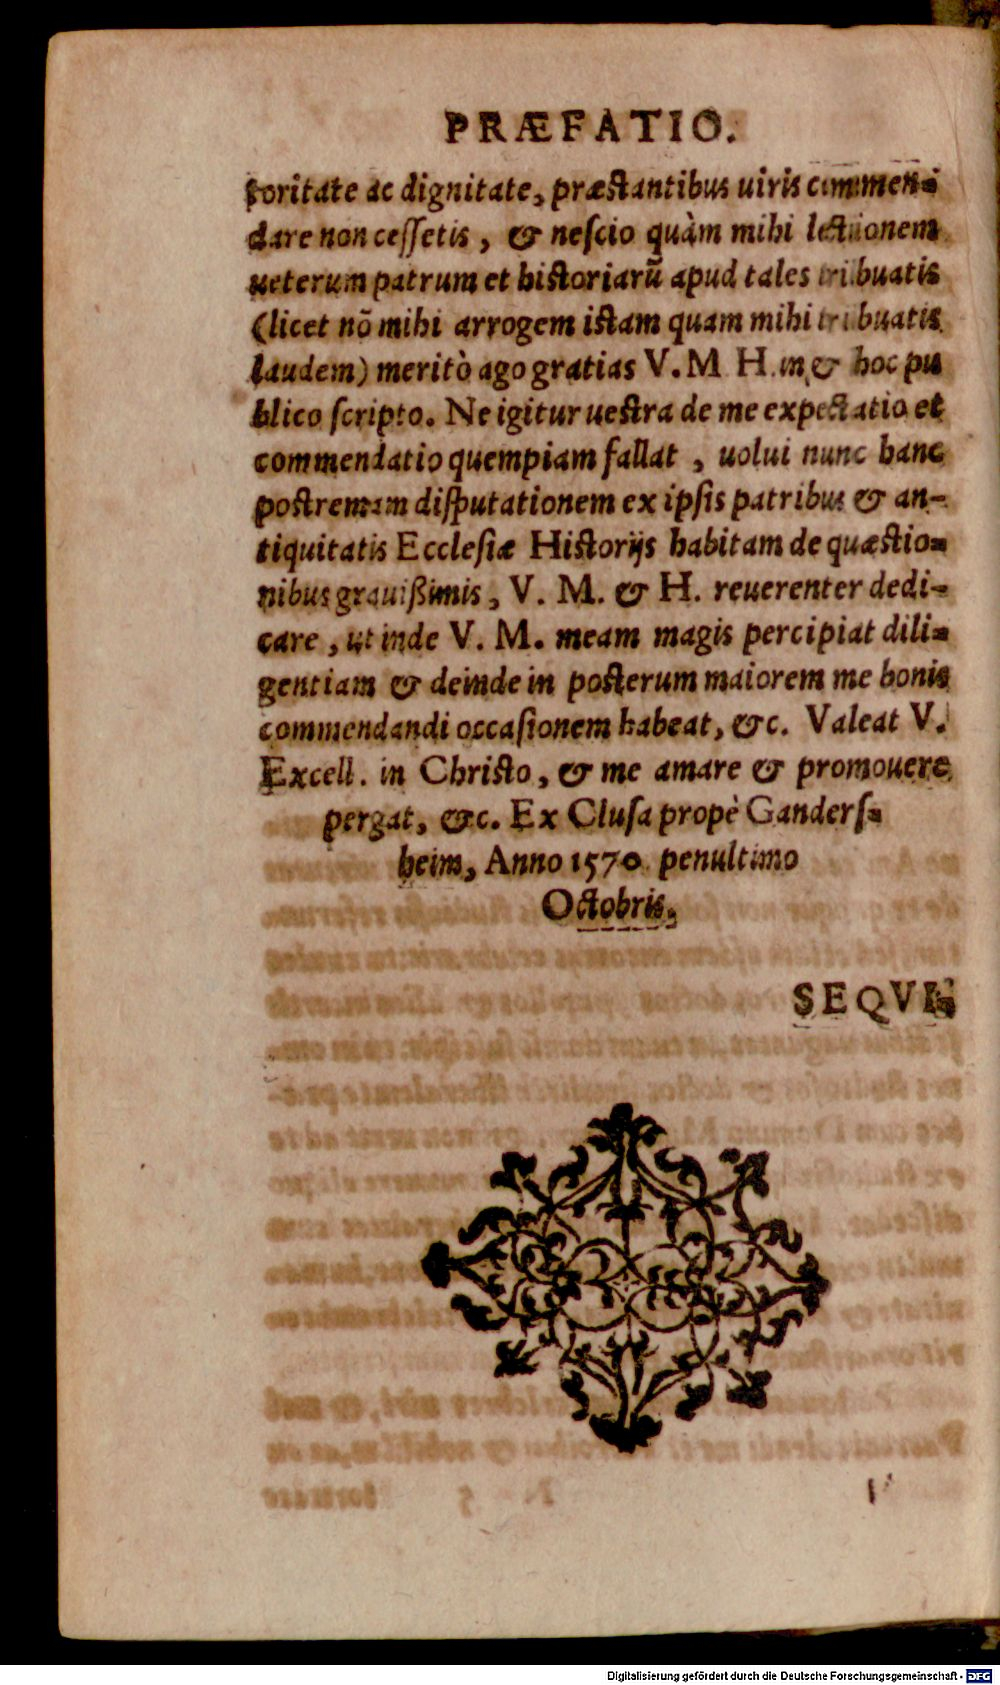 PRÆFATIO.
toritate ac dignitate, præstantibus uiris commen-
dare non cessetis, & nescio quàm mihi lectionem
ueterum patrum et historiarũ apud tales tribuatis
(licet nõ mihi arrogem istam quam mihi tribuatis
laudem) meritò ago gratias V. M H. in & hoc pu
blico scripto. Ne igitur uestra de me expectatio et
commendatio quempiam fallat, uolui nunc hanc
postremam disputationem ex ipsis patribus & an-
tiquitatis Ecclesiæ Historijs habitam de quæstio-
nibus grauißimis, V. M. & H. reuerenter dedi-
care, ut inde V. M. meam magis percipiat dili-
gentiam & deinde in posterum maiorem me bonis
commendandi occasionem habeat, &c. Valeat V.
Excell. in Christo, & me amare & promouere
pergat, &c. Ex Clusa propè Ganders-
heim, Anno 1570 penultimo
Octobris.
SEQVI-
Digitalisierung gefördert durch die Deutsche Forschungsgemeinschaft - DFG